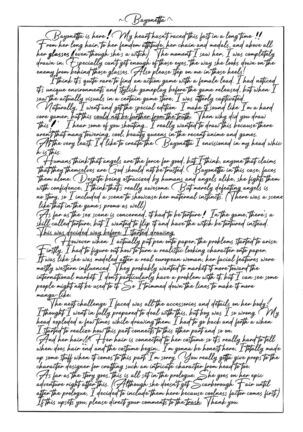 ~ Bayonetta ~
Bayonetta is here! My heart hasn't raced this fast in a long time!!
From her long hair to her femdom attitude, her chain and medals, and above all
her glasses (even though she's a witch). The moment I saw her, I was completely
drawn in. Especially can't get enough of those eyes, the way she looks down on the
enemy from behind those glasses. Also please step on me in those heels!
I think it's quite rare to find an action game with a female lead. I had noticed
it's unique environment and stylish gameplay before the game released but when I
saw the actually visuals in a certain game store, I was utterly captivated.
Naturally I went and got the special edition. I make it sound like I'm a hard
core gamer, but this could not be further from the truth. Then why did you draw
this? I hear some of you shouting. I really wanted to draw this because there
aren't that many towering, cool, beauty queens in the recent anime and games.
At the very least, I'd like to create the Bayonetta I envisioned in my head while
in this.
Humans think that angels are the force for good, but I think, anyone that claims
that they themselves are God should not be trusted. Bayonetta in this case, faces
them alone. Despite being attracted by humans and angels alike, she fights them
with confidence. I think that's really awesome. But merely defeating angels is
no story, so I included a scene to showcase her maternal instincts. (There was a scene
like that in the game's promo as well)
As for as the sex scene is concerned, it had to be torture! In the game, there's a
skill called torture, but I wanted to flip it and have the witch be tortured instead.
This was decided way before I started drawing.
However when I actually put pen onto paper, the problems started to arise.
Firstly, I had to figure out how to turn a realistic looking character into paper.
It was like she was modeled after a real european woman, her facial features were
mostly western influenced. They probably wanted to market it more toward the
international market. I don't particularly have a problem with it but I can see some
people might not be used to it. So I trimmed down the lines to make it more
manga-like.
The next challenge I faced was all the accessories and details on her body!
I thought I went in fully prepared to deal with this, but boy was I so wrong. My
head exploded a few times while drawing them. I had to go back and forth a when
I started to realize how this part connects to this other part and so on.
And her hair!? Her hair is connected to her costume so it's really hard to tell
when does hair end and the costume begin. I'm gonna be honest here, I totally made
up some stuff when it comes to this part, I'm sorry. You really gotta give props to the
character designer for creating such an intricate character from head to toe.
As for as the story goes, this is all set in the prologue. She goes on her epic
adventure right after this. (Although she doesn't get Scarborough Fair until
after the prologue, I decided to include them here because coolness factor comes first)
If this upsets you, please direct your comments to the trash. Thank you.